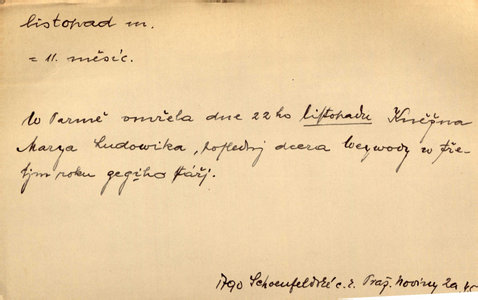 listopad m.
= 11. měsíc.
W Parmě vmřela dne 22ho listopadu Kněžna
Marya Ludowika, poslednj dcera Weywody w tře-
tjm roku gegjho stářj.
1790 Schoenfeldské c. k. Praž. Noviny